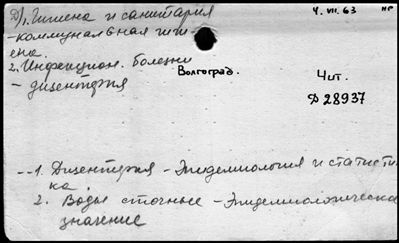 Д/1. Гигиена и санитария
4. VII. 63
нг
- коммунальная гиги-
ена.
2. Инфекцион. болезни
Волгоград.
- дизентерия
Чит.
Д 28937
-- 1. Дизентерия - Эпидемиология и статисти-
ка.
2. Воды сточные - Эпидемиологическое
значение